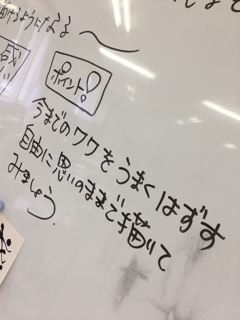 描けるようになる〜
ポイント!
今までのワクをうまくはずす
自由に思いのままで描いて
みましょう。